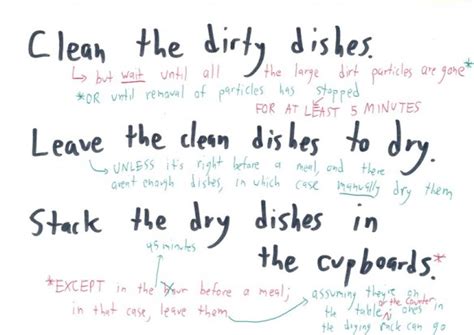 Clean the dirty dishes.
↳ but wait until all the large dirt particles are gone*
*OR until removal of particles has stopped
FOR AT LEAST 5 MINUTES
Leave the clean dishes to dry.
UNLESS it's right before a meal, and there
arent enough dishes, in which case manually dry them
Stack the dry dishes in
45 minutes
the cupboards.*
*EXCEPT in the hour before a meal;
in that case, leave them
assuming they're on
the table, or the counter
ones in
the drying rack can go